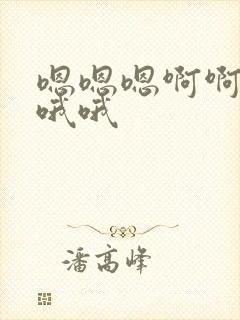 嗯嗯嗯啊啊
哦哦
潘高峰